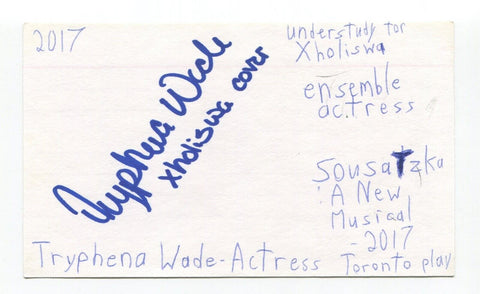 2017
Tryphena Wade
Xholiswa cover
understudy for
Xholiswa
ensemble
actress
Sousatzka
: A New
Musical
- 2017
Toronto play
Tryphena Wade-Actress